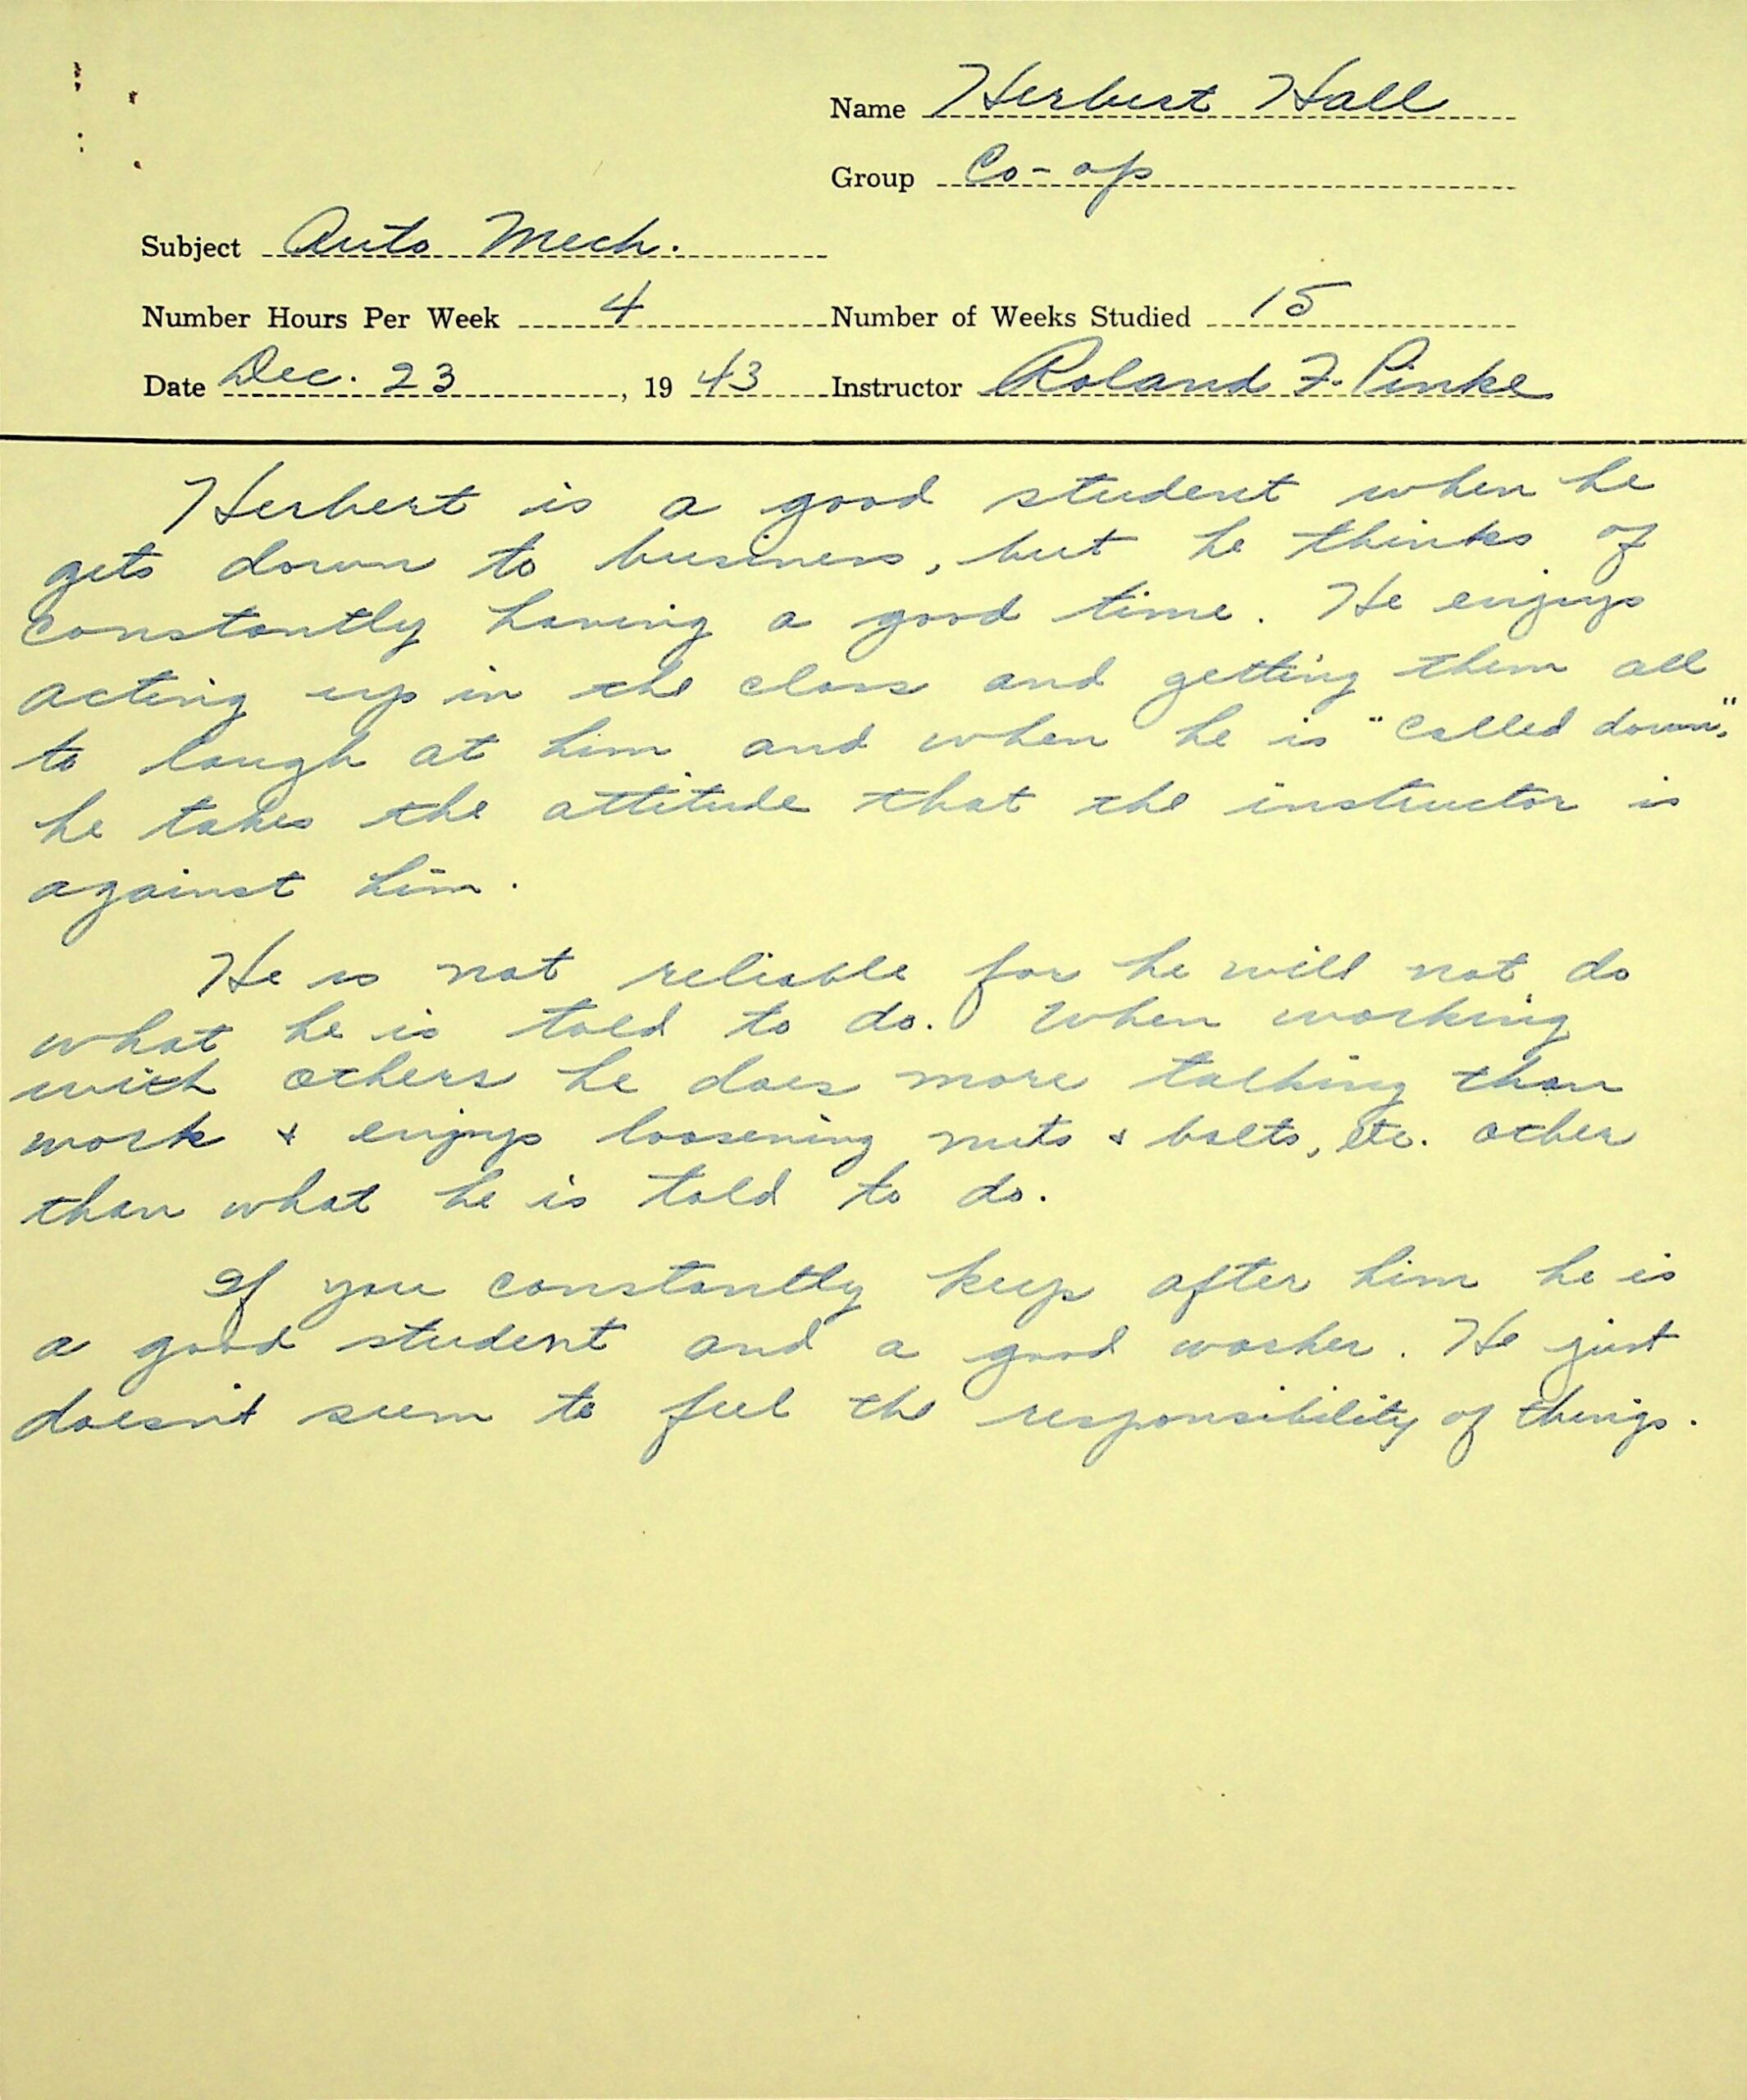 Name Herbert Hall
Group Co-op
Subject Auto Mech.
Number Hours Per Week 4 Number of Weeks Studied 15
Date Dec. 23, 19 43 Instructor Roland F. Pinke
Herbert is a good student when he
gets down to business, but he thinks of
constantly having a good time. He enjoys
acting up in the class and getting them all
to laugh at him and when he is "called down",
he takes the attitude that the instructor is
against him.
He is not reliable for he will not do
what he is told to do. When working
with others he does more talking than
work & enjoys loosening nuts & bolts, etc. other
than what he is told to do.
If you constantly keep after him he is
a good student and a good worker. He just
doesn't seem to feel the responsibility of things.